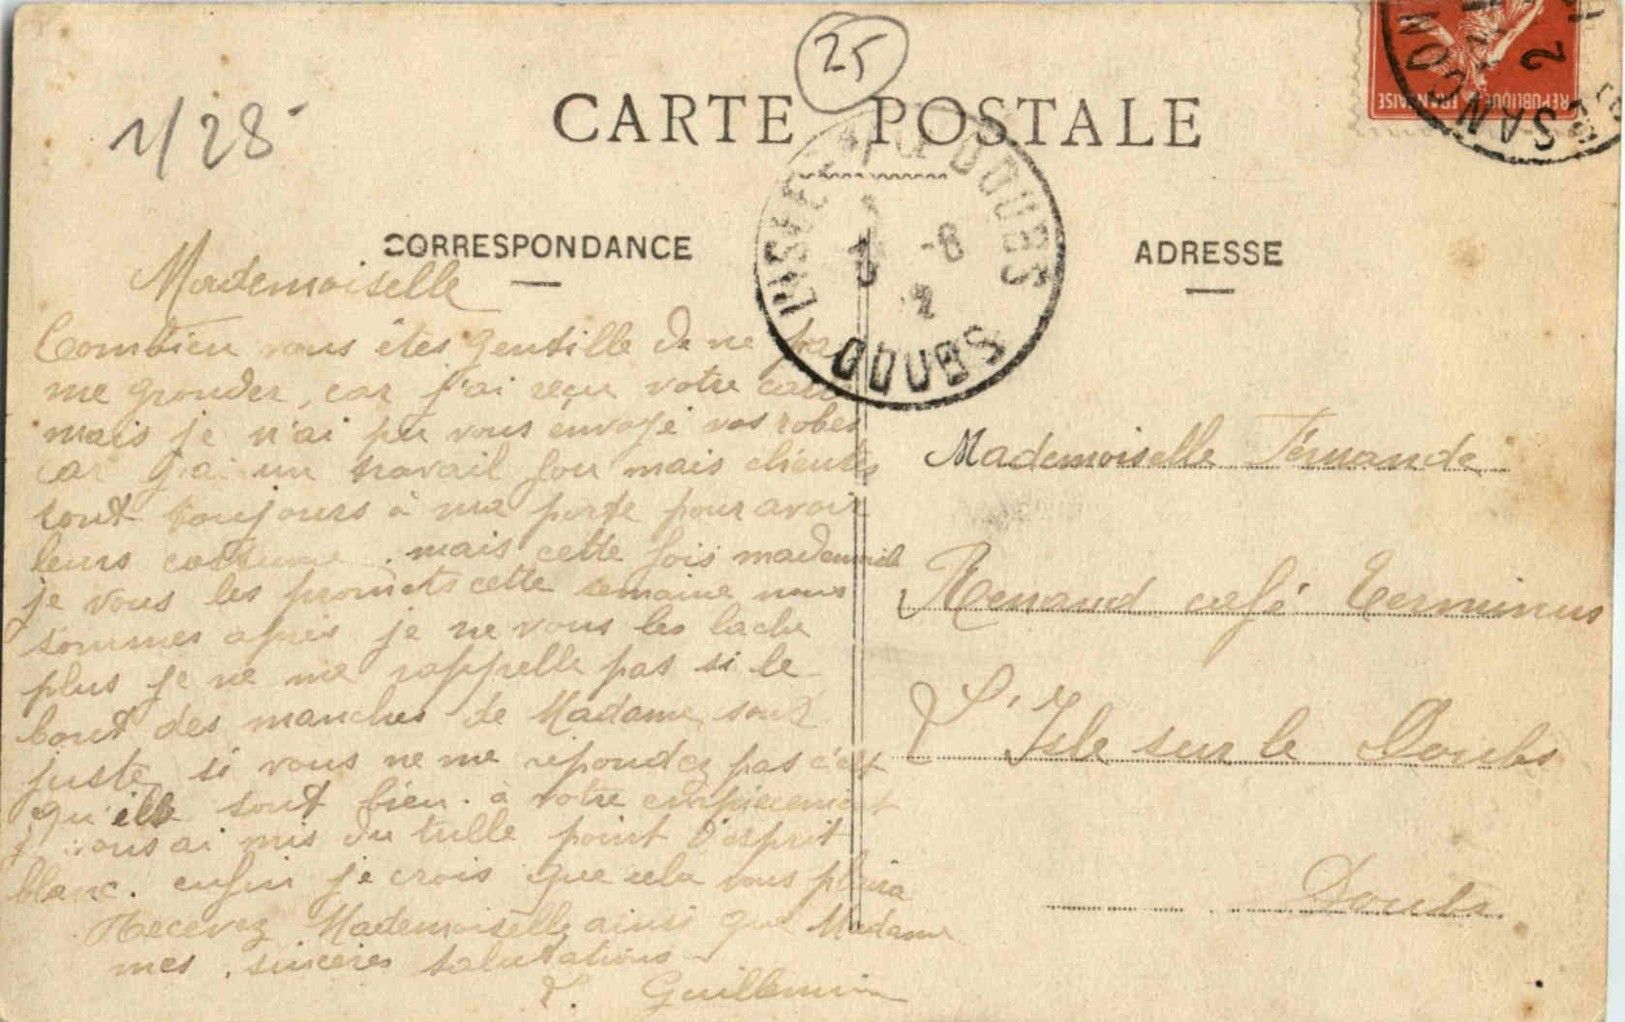 25
1/28
CARTE POSTALE
CORRESPONDANCE
ADRESSE
REPUBLIQUE FRANÇAISE
L'ISLE DOUBS
DOUBS
Mademoiselle
Combien vous êtes gentille de ne pas
me gronder, car j'ai reçu votre carte
mais je n'ai pu vous envoyé vos robes
car j'ai un travail fou mais clients
sont toujours à ma porte pour avoir
leurs costume. mais cette fois mademoiselle
je vous les promets cette semaine nous
sommes après je ne vous les lache
plus je ne me rappelle pas si le
bout des manches de Madame sont
juste, si vous ne me répondez pas c'est
qu'elle sont bien. à votre empiècement
je vous ai mis du tulle point d'esprit
blanc. enfin je crois que cela vous plaira
Recevez Mademoiselle ainsi que Madame
mes sincères salutations
Guillemin
Mademoiselle Fernande
Renaud café Terminus
L'Isle sur le Doubs
Doubs.